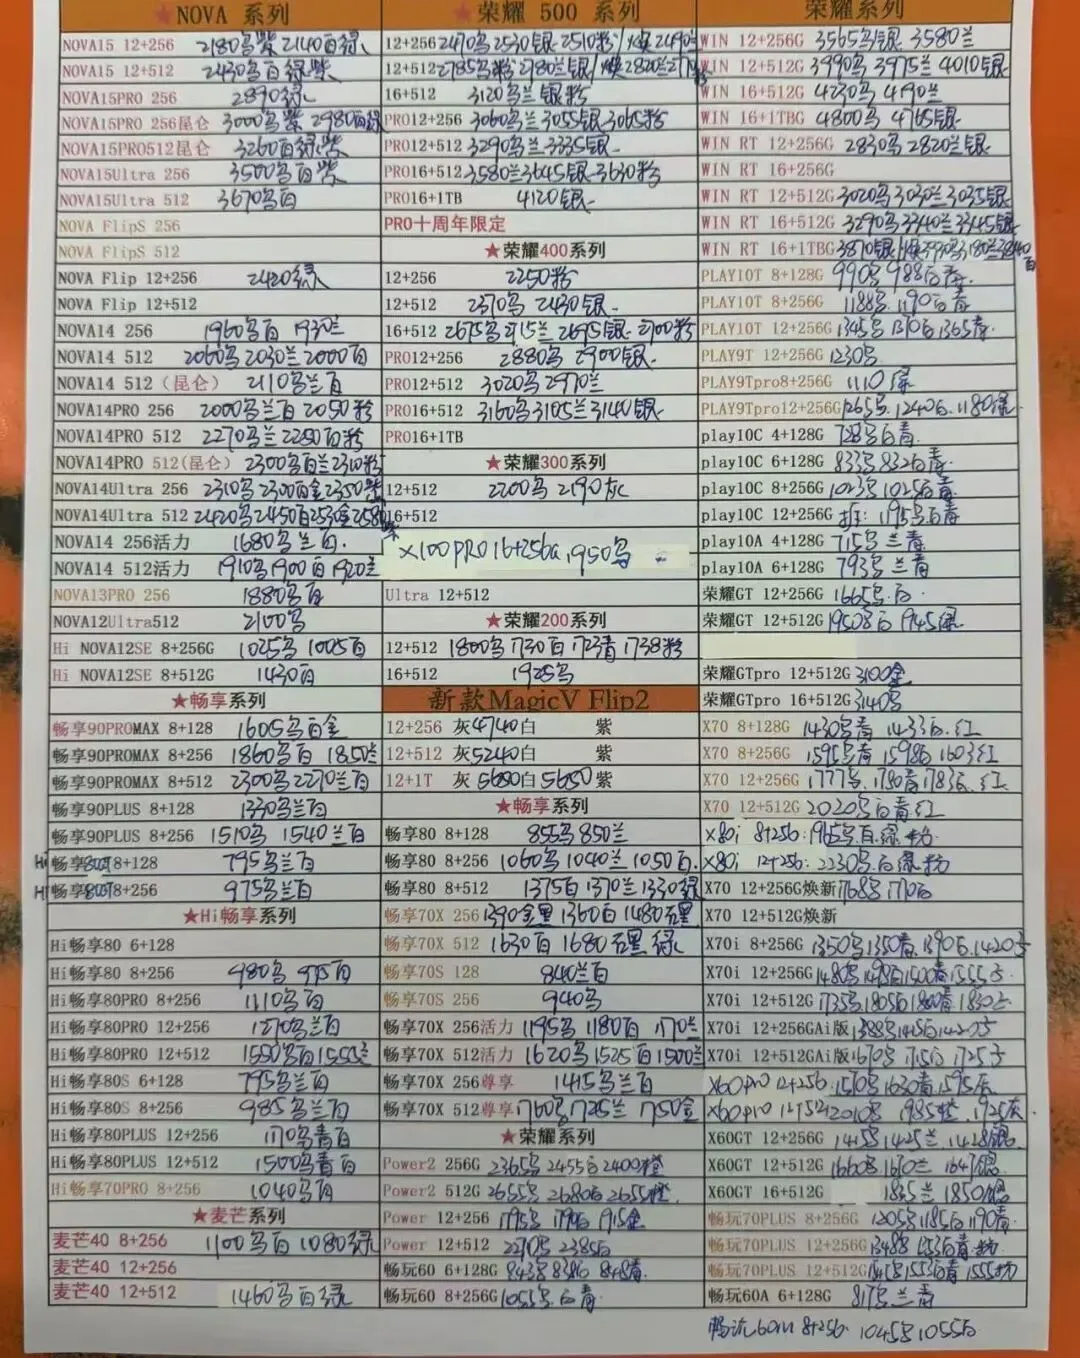 ★NOVA 系列
NOVA15 12+256 2180乌紫 2140百绿
NOVA15 12+512 2430乌百绿紫
NOVA15PRO 256 2890绿
NOVA15PRO 256昆仑 3000乌紫 2980百绿
NOVA15PRO512昆仑 3260百绿紫
NOVA15Ultra 256 3500乌百紫
NOVA15Ultra 512 3670乌百
NOVA FlipS 256
NOVA FlipS 512
NOVA Flip 12+256 2420绿
NOVA Flip 12+512
NOVA14 256 1960乌百 1930兰
NOVA14 512 2060乌 2030兰 2000百
NOVA14 512（昆仑） 2110乌兰百
NOVA14PRO 256 2000乌兰百 2050粉
NOVA14PRO 512 2270乌兰 2280百粉
NOVA14PRO 512(昆仑） 2300乌百兰 2310粉
NOVA14Ultra 256 2310乌 2300百金 2350紫
NOVA14Ultra 512 2420乌 2450百 2530金 2580紫
NOVA14 256活力 1680乌兰百.
NOVA14 512活力 1910乌 1900百 1920兰
NOVA13PRO 256 1880乌百
NOVA12Ultra512 2100乌
Hi NOVA12SE 8+256G 1025乌 1005百
Hi NOVA12SE 8+512G 1430百
★畅享系列
畅享90PROMAX 8+128 1605乌百金
畅享90PROMAX 8+256 1860乌百 1850兰
畅享90PROMAX 8+512 2300乌 2270兰百
畅享90PLUS 8+128 1330乌兰百
畅享90PLUS 8+256 1510乌 1540兰百
Hi 畅享 8+128 795乌兰百
Hi 畅享 8+256 975乌兰百
★Hi畅享系列
Hi畅享80 6+128
Hi畅享80 8+256 980乌 975百
Hi畅享80PRO 8+256 1110乌百
Hi畅享80PRO 12+256 1270乌兰百
Hi畅享80PRO 12+512 1550乌百1555兰
Hi畅享80S 6+128 795乌兰百
Hi畅享80S 8+256 985乌兰百
Hi畅享80PLUS 12+256 1170乌青百
Hi畅享80PLUS 12+512 1500乌青百
Hi畅享70PRO 8+256 1040乌百
★麦芒系列
麦芒40 8+256 1100乌百 1080绿
麦芒40 12+256
麦芒40 12+512 1460乌百绿
★荣耀 500 系列
12+256 2470乌 2530银 2510粉/焕2490兰
12+512 2785乌粉 2780兰银/焕2820兰
16+512 3120乌兰银粉
PRO12+256 3060乌兰 3055银 3065粉
PRO12+512 3290乌兰 3335银
PRO16+512 3580兰 3645银 3630粉
PRO16+1TB 4120银
PRO十周年限定
★荣耀400系列
12+256 2250粉
12+512 2370乌 2430银
16+512 2675乌 2715兰 2695银 2700粉
PRO12+256 2880乌 2900银
PRO12+512 3020乌 2970兰
PRO16+512 3160乌 3105兰 3140银
PRO16+1TB
★荣耀300系列
12+512 2200乌 2190灰
16+512
X100PRO 16+256G 1950乌
Ultra 12+512
★荣耀200系列
12+512 1800乌 1730百 1723青 1738粉
16+512 1925乌
新款MagicV Flip2
12+256 灰4740白 紫
12+512 灰5240白 紫
12+1T 灰5680白5650紫
★畅享系列
畅享80 8+128 855乌 850兰
畅享80 8+256 1060乌 1040兰 1050百
畅享80 8+512 1375百 1370兰 1330绿
畅享70X 256 1390金黑 1360百 1480石黑
畅享70X 512 1630百 1680石黑 绿
畅享70S 128 840兰百
畅享70S 256 940乌
畅享70X 256活力 1195乌 1180百 1170兰
畅享70X 512活力 1620乌 1525百 1500兰
畅享70X 256尊享 1415乌兰百
畅享70X 512尊享 1760乌 1725兰 1750金
★荣耀系列
Power2 256G 2365乌 2455白 2400橙
Power2 512G 2655乌 2680白 2655橙
Power 12+256 1795乌 1790白 1915金
Power 12+512 2270乌 2385白
畅玩60 6+128G 843乌 838白 848青
畅玩60 8+256G 1055乌白青
荣耀系列
WIN 12+256G 3565乌银 3580兰
WIN 12+512G 3990乌 3975兰 4010银
WIN 16+512G 4230乌 4190兰
WIN 16+1TBG 4800乌 4765银
WIN RT 12+256G 2830乌 2820兰银
WIN RT 16+256G
WIN RT 12+512G 3020乌 3030兰 3035银
WIN RT 16+512G 3290乌 3340兰 3345银
WIN RT 16+1TBG 3870银
PLAY10T 8+128G 990乌 988白青
PLAY10T 8+256G 1188乌 1190白青
PLAY10T 12+256G 1345乌 1370白 1365青
PLAY9T 12+256G 1230乌
PLAY9Tpro8+256G 1110绿
PLAY9Tpro12+256G 1265乌 1240白 1180绿
play10C 4+128G 728乌白青
play10C 6+128G 833乌 832白青
play10C 8+256G 1023乌 1025白青
play10C 12+256G 1195乌白青
play10A 4+128G 715乌兰青
play10A 6+128G 793乌兰青
荣耀GT 12+256G 1665乌白
荣耀GT 12+512G 1950乌白 1945绿
荣耀GTpro 12+512G 3100金
荣耀GTpro 16+512G 3140乌
X70 8+128G 1430乌青 1433白红
X70 8+256G 1595乌青 1598白 1603红
X70 12+256G 1777乌 1780青 1783白红
X70 12+512G 2020乌白青红
X80i 8+256: 1965乌白绿粉
X80i 12+256: 2230乌白绿粉
X70 12+256G焕新 1768乌 1770白
X70 12+512G焕新
X70i 8+256G 1350乌 1350青 1390白
X70i 12+256G 1480乌 1498白 1500青
X70i 12+512G 1735乌 1805白 1800青
X70i 12+256GAi版
X70i 12+512GAi版 1670乌 1715白
X60pro 12+256: 1570乌 1630青 1595灰
X60pro 12+512 2010乌 1985橙 1925灰
X60GT 12+256G 1415乌 1425兰 1428银
X60GT 12+512G 1660乌 1670兰 1647银
X60GT 16+512G 1845兰 1850银
畅玩70PLUS 8+256G 1205乌 1185白 1190青
畅玩70PLUS 12+256G
畅玩70PLUS 12+512G
畅玩60A 6+128G 817乌兰青
畅玩60m 8+256 1045乌 1055白